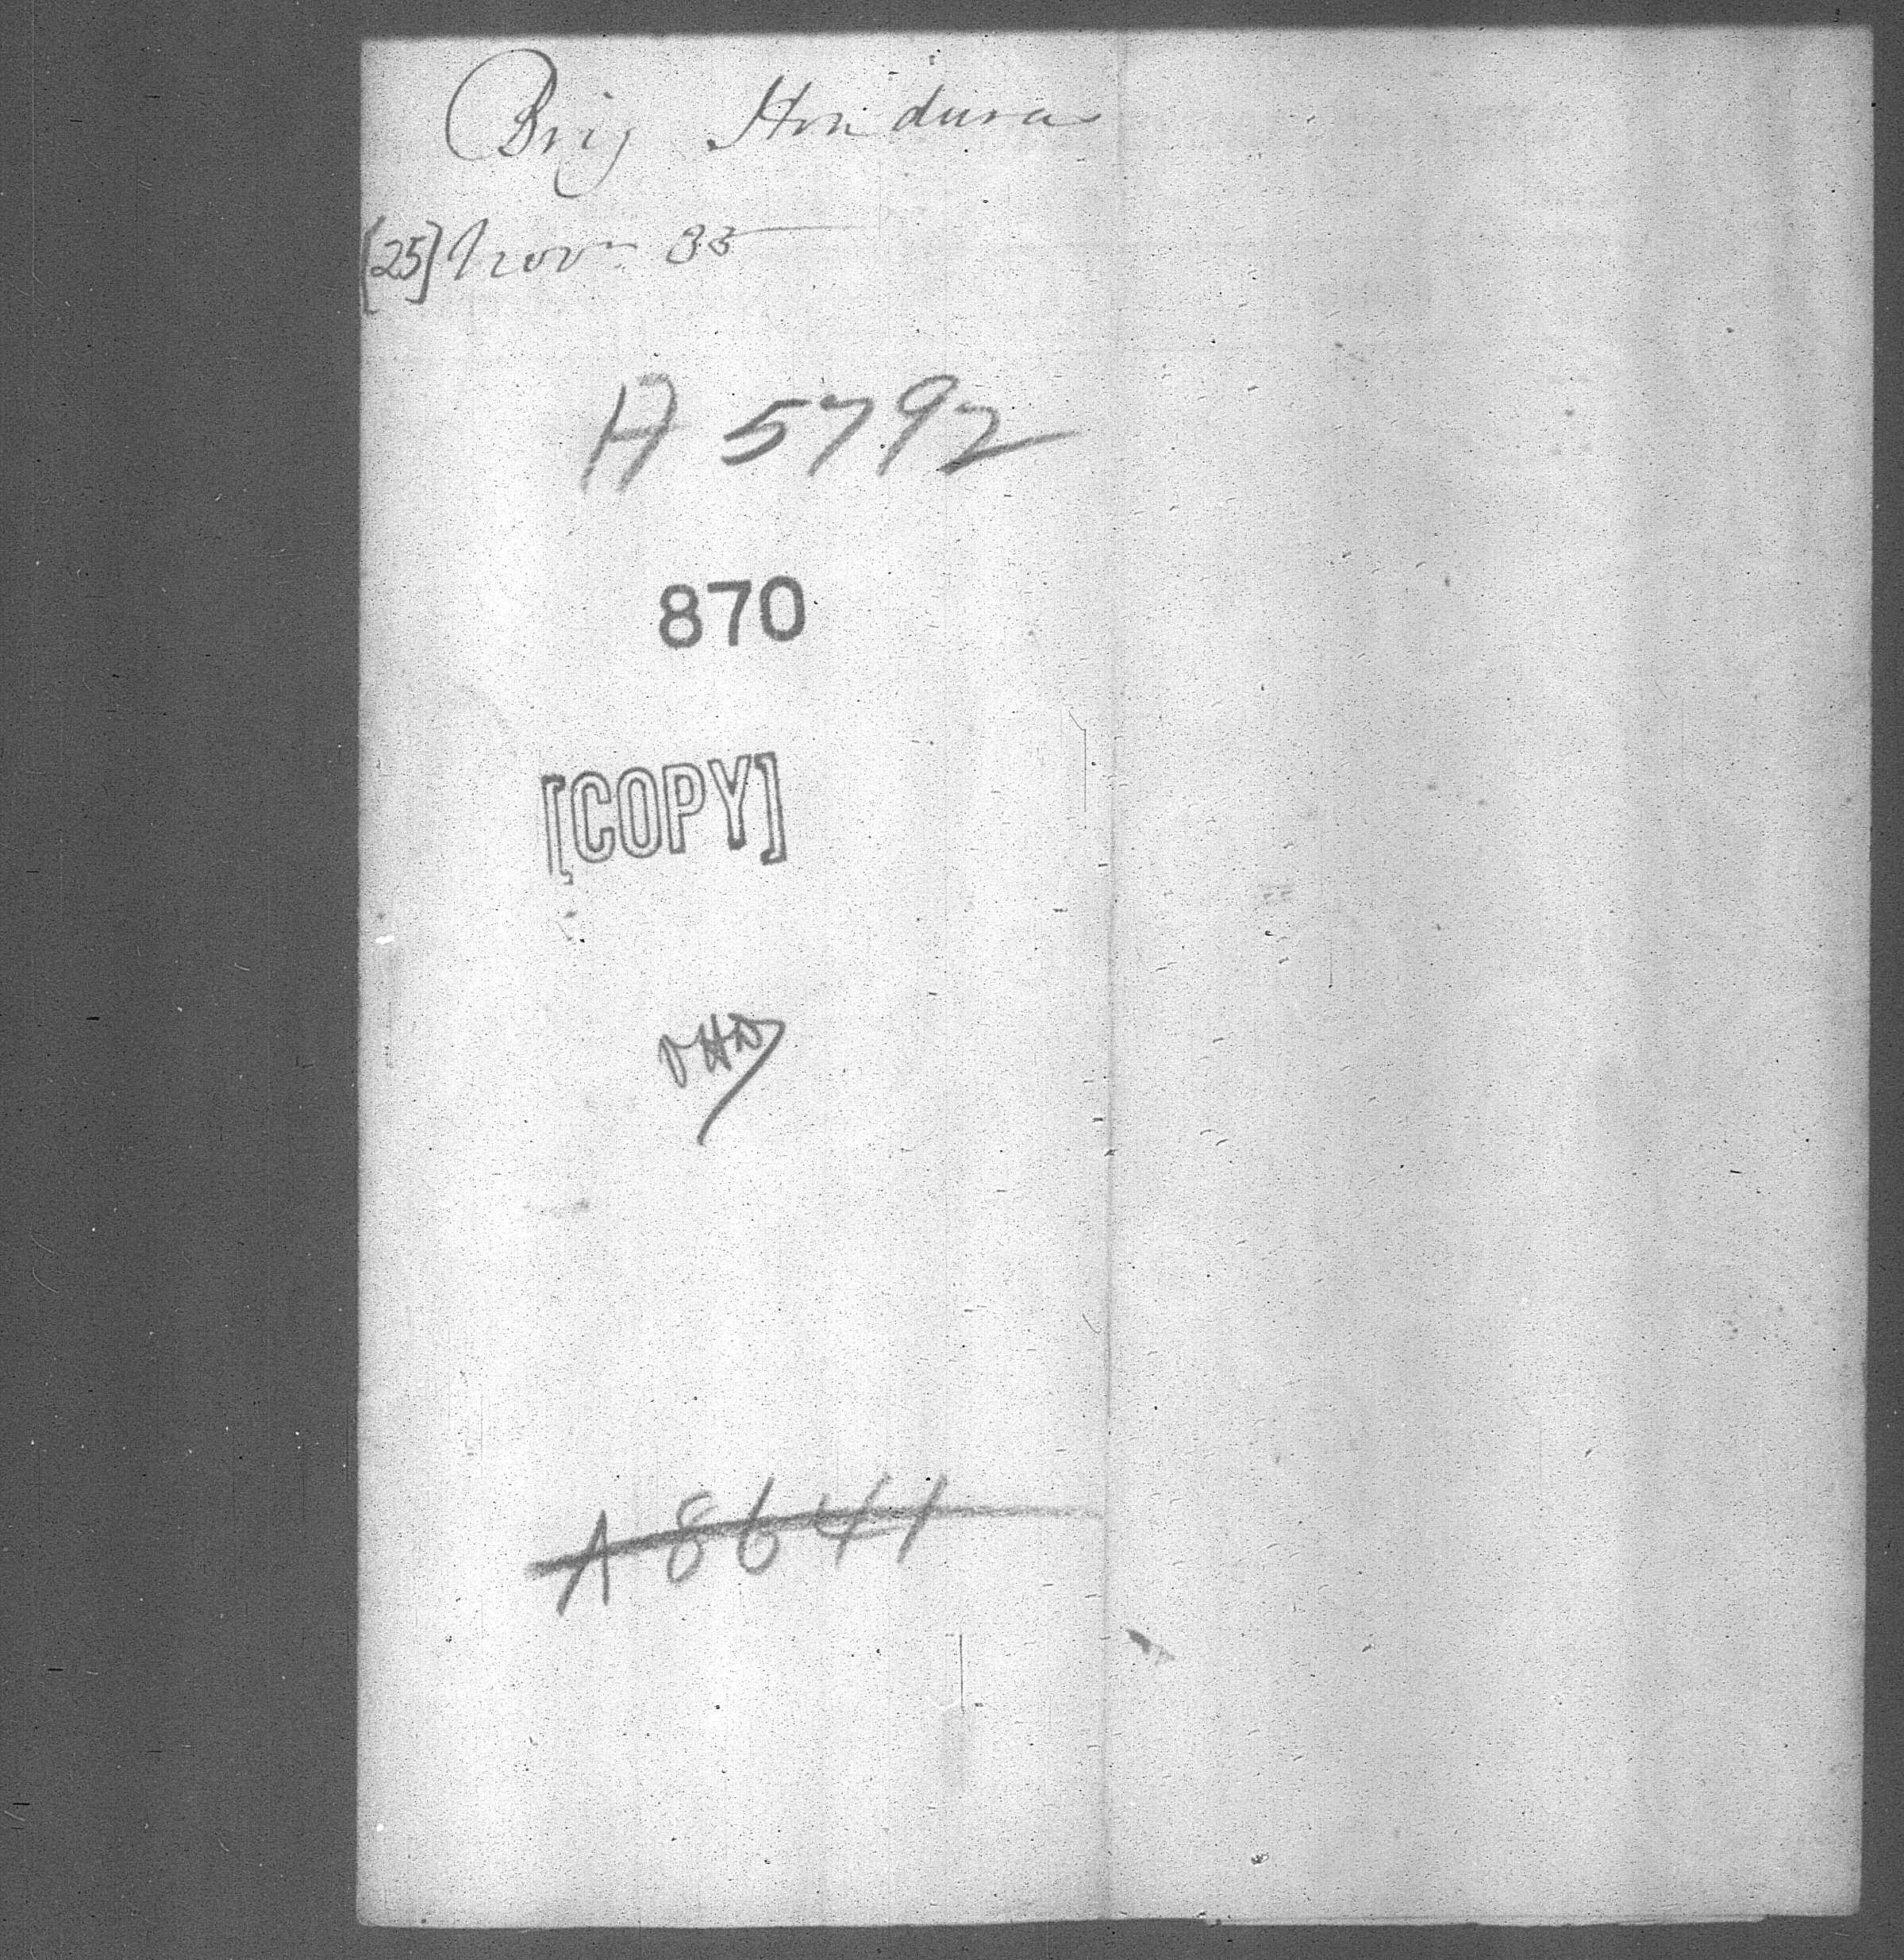 Brig Honduras
[25] Novr 35
A 5792
870
[COPY]
A 8641